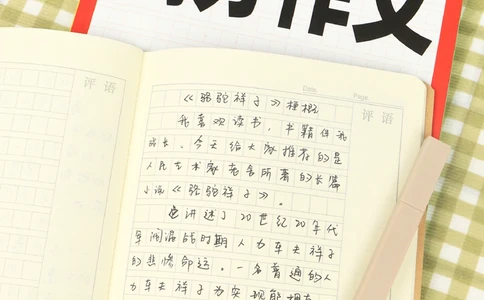 作文
评语
Date
Page
评语
《骆驼祥子》梗概
我喜欢读书，书籍伴我
成长。今天给大家推荐的是
人民艺术家老舍所著的长篇
小说《骆驼祥子》。
它讲述了20世纪20年代
军阀混战时期人力车夫祥子
的悲惨命运。一名普通的人
力车夫祥子为实现能拥有